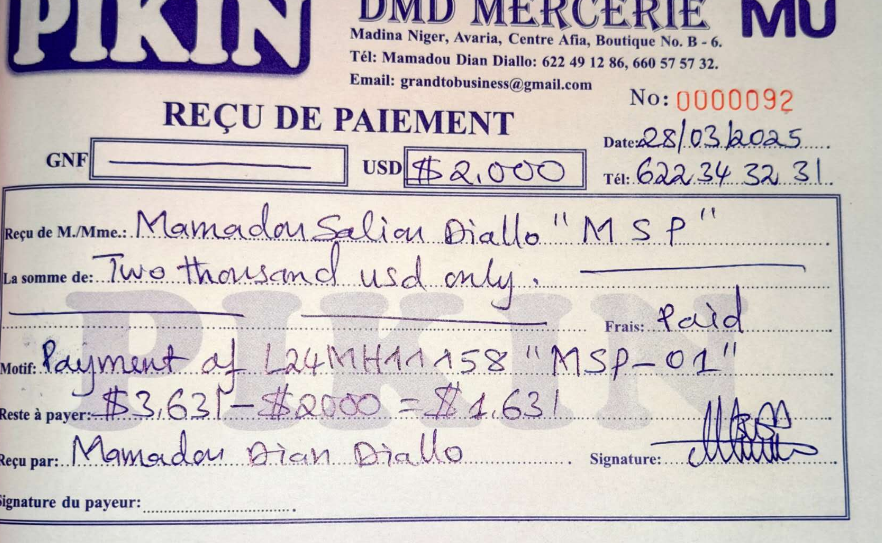 PIKIN
DMD MERCERIE
MU
Madina Niger, Avaria, Centre Afia, Boutique No. B - 6.
Tél: Mamadou Dian Diallo: 622 49 12 86, 660 57 57 32.
Email: grandtobusiness@gmail.com
No: 0000092
REÇU DE PAIEMENT
Date: 28/03/2025
GNF
USD $ 2,000
Tél: 622 34 32 31
Reçu de M./Mme.: Mamadou Saliou Diallo "M S P"
La somme de: Two thousand usd only.
Frais: Paid
PIKIN
Motif: Payment of L24MH11158 "MSP-01"
Reste à payer: $3,631 - $2000 = $1,631
Reçu par: Mamadou Dian Diallo
Signature:
Signature du payeur: